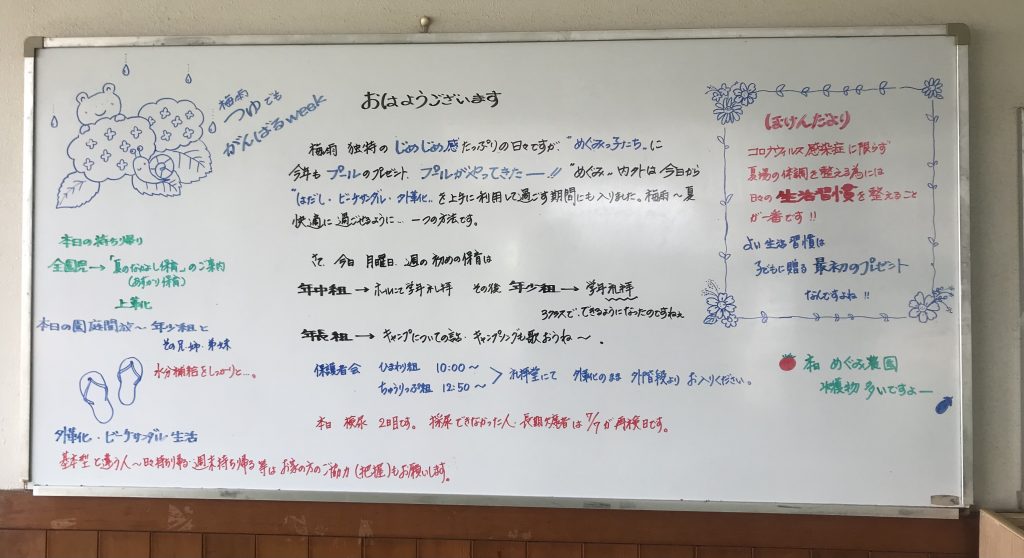 梅雨
つゆでも
がんばるweek
おはようございます
梅雨 独特の じめじめ感たっぷりの日々ですが、"めぐみっ子たち"に
今年も プールのプレゼント、プールがやってきたー!! "めぐみ"内外は 今日から
"はだし・ビーチサンダル・外靴"を上手に利用して過ごす期間にも入りました。梅雨～夏
快適に 過ごせるように… 一つの方法です。
さて、今日 月曜日、週の初めの保育は
年中組 → ホールにて学年礼拝 その後 年少組 → 学年礼拝
3クラスで、できるようになったのですねぇ
年長組 → キャンプについての話・キャンプソングも歌おうね～。
保護者会 ひまわり組 10:00～
ちゅうりっぷ組 12:50～
礼拝堂にて 外靴のまま 外階段より お入りください。
本日 検尿 2日目です。 採尿できなかった人・長期欠席者は 7/7 が再検日です。
本日の持ち帰り
全園児→「夏のなかよし保育」のご案内
(あずかり保育)
上靴
本日の園庭開放～ 年少組と
その兄・姉・弟・妹
水分補給をしっかりと…。
外靴・ビーチサンダル・生活
基本型と違う人～日々持ち帰る・週末持ち帰る 等は お家の方のご協力(把握)もお願いします。
ほけんだより
コロナウィルス感染症に限らず
夏場の体調を整える為には
日々の 生活習慣を整えること
が一番です!!
よい生活習慣は
子どもに贈る 最初のプレゼント
なんですよね!!
本日 めぐみ農園
収穫物 多いですよー